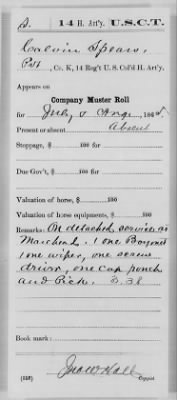 S. 14 H. Art'y. U.S.C.T.
Calvin Spears,
Pvt, Co. K, 14 Reg't U. S. Col'd H. Art'y.
Appears on
Company Muster Roll
for July & Aug, 1865.
Present or absent Absent
Stoppage, $ 100 for
Due Gov't, $ 100 for
Valuation of horse, $ 100
Valuation of horse equipments, $ 100
Remarks: On detached service at
Morehead. 1 one Bayonet
1 one wiper, one screw
driver, one cap punch
and Pick. 3.38
Book mark:
(358) Copyist.